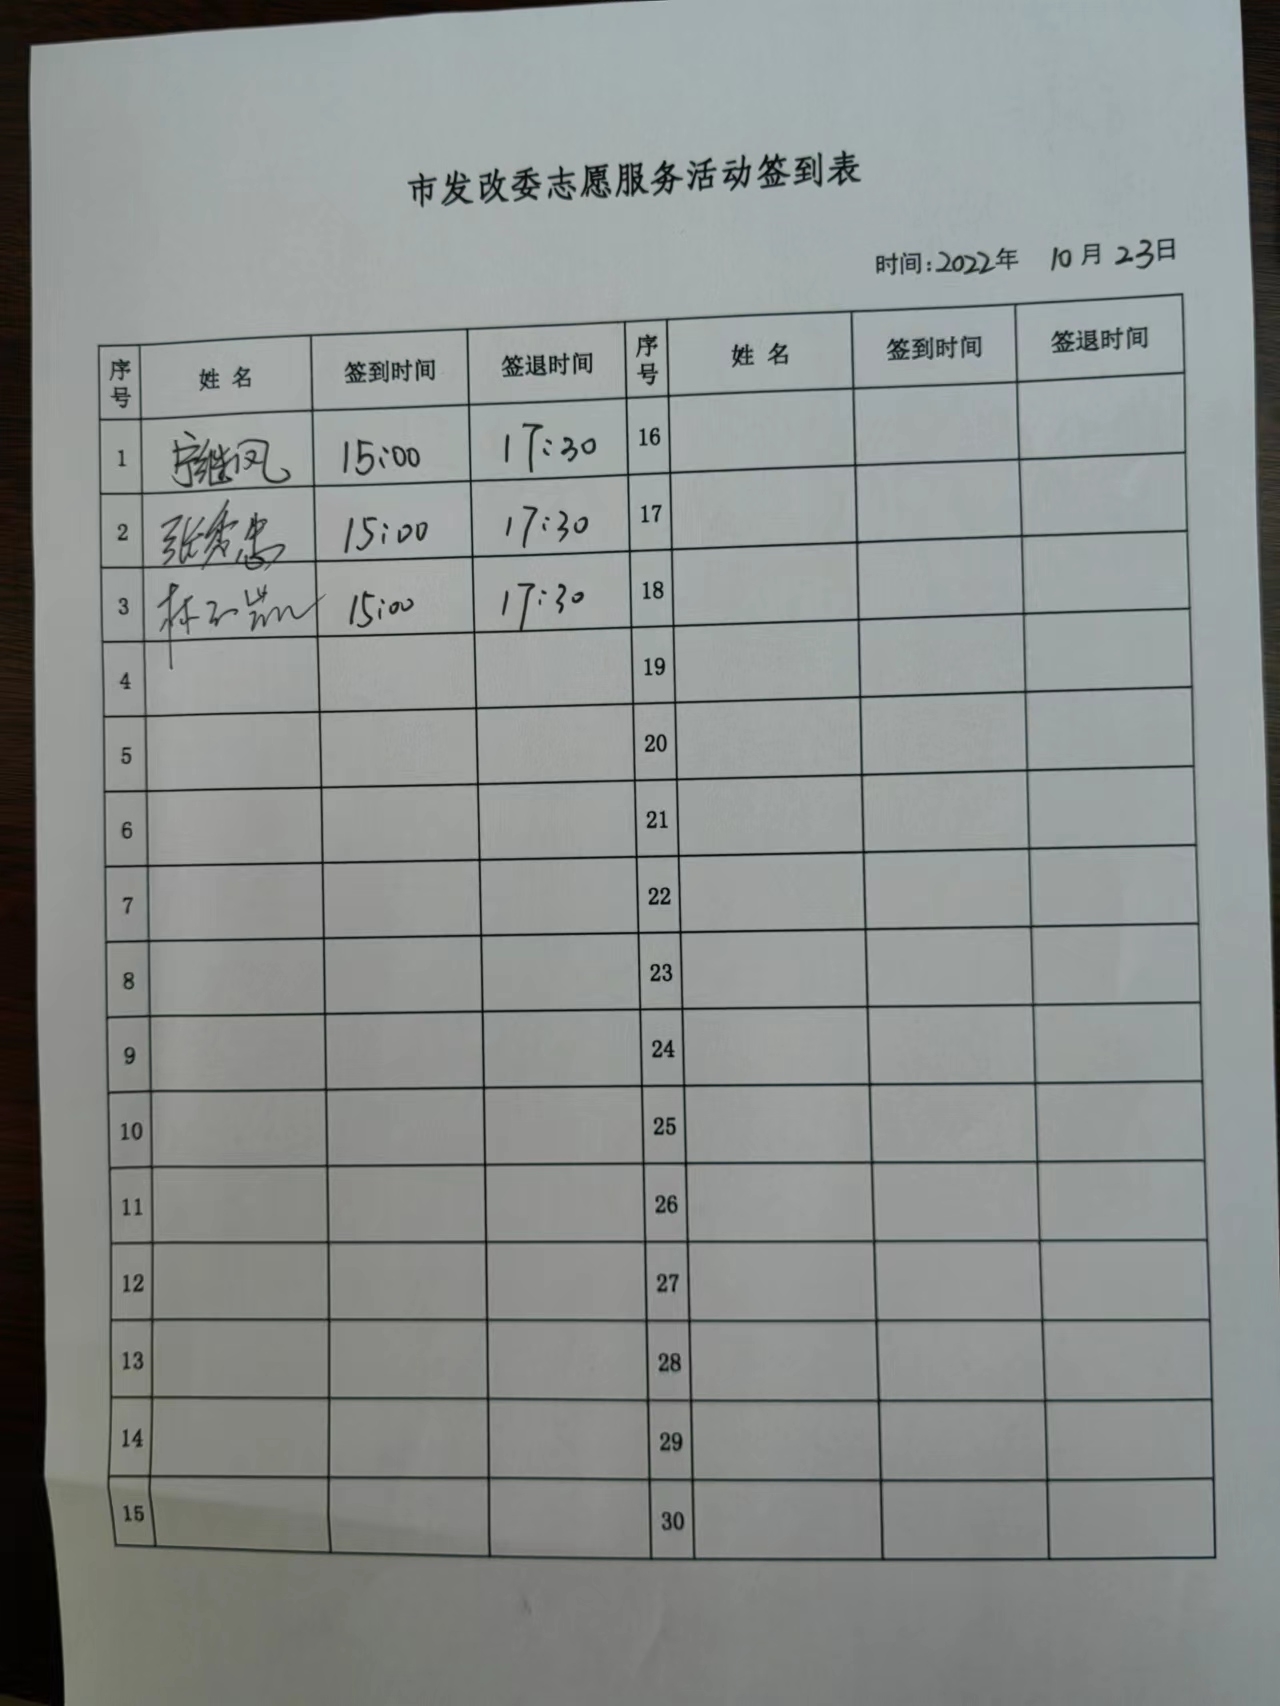 市发改委志愿服务活动签到表
时间:2022年 10月23日
序号 姓名 签到时间 签退时间 序号 姓名 签到时间 签退时间
1 宁继凤 15:00 17:30 16
2 张秀忠 15:00 17:30 17
3 林 15:00 17:30 18
4 19
5 20
6 21
7 22
8 23
9 24
10 25
11 26
12 27
13 28
14 29
15 30